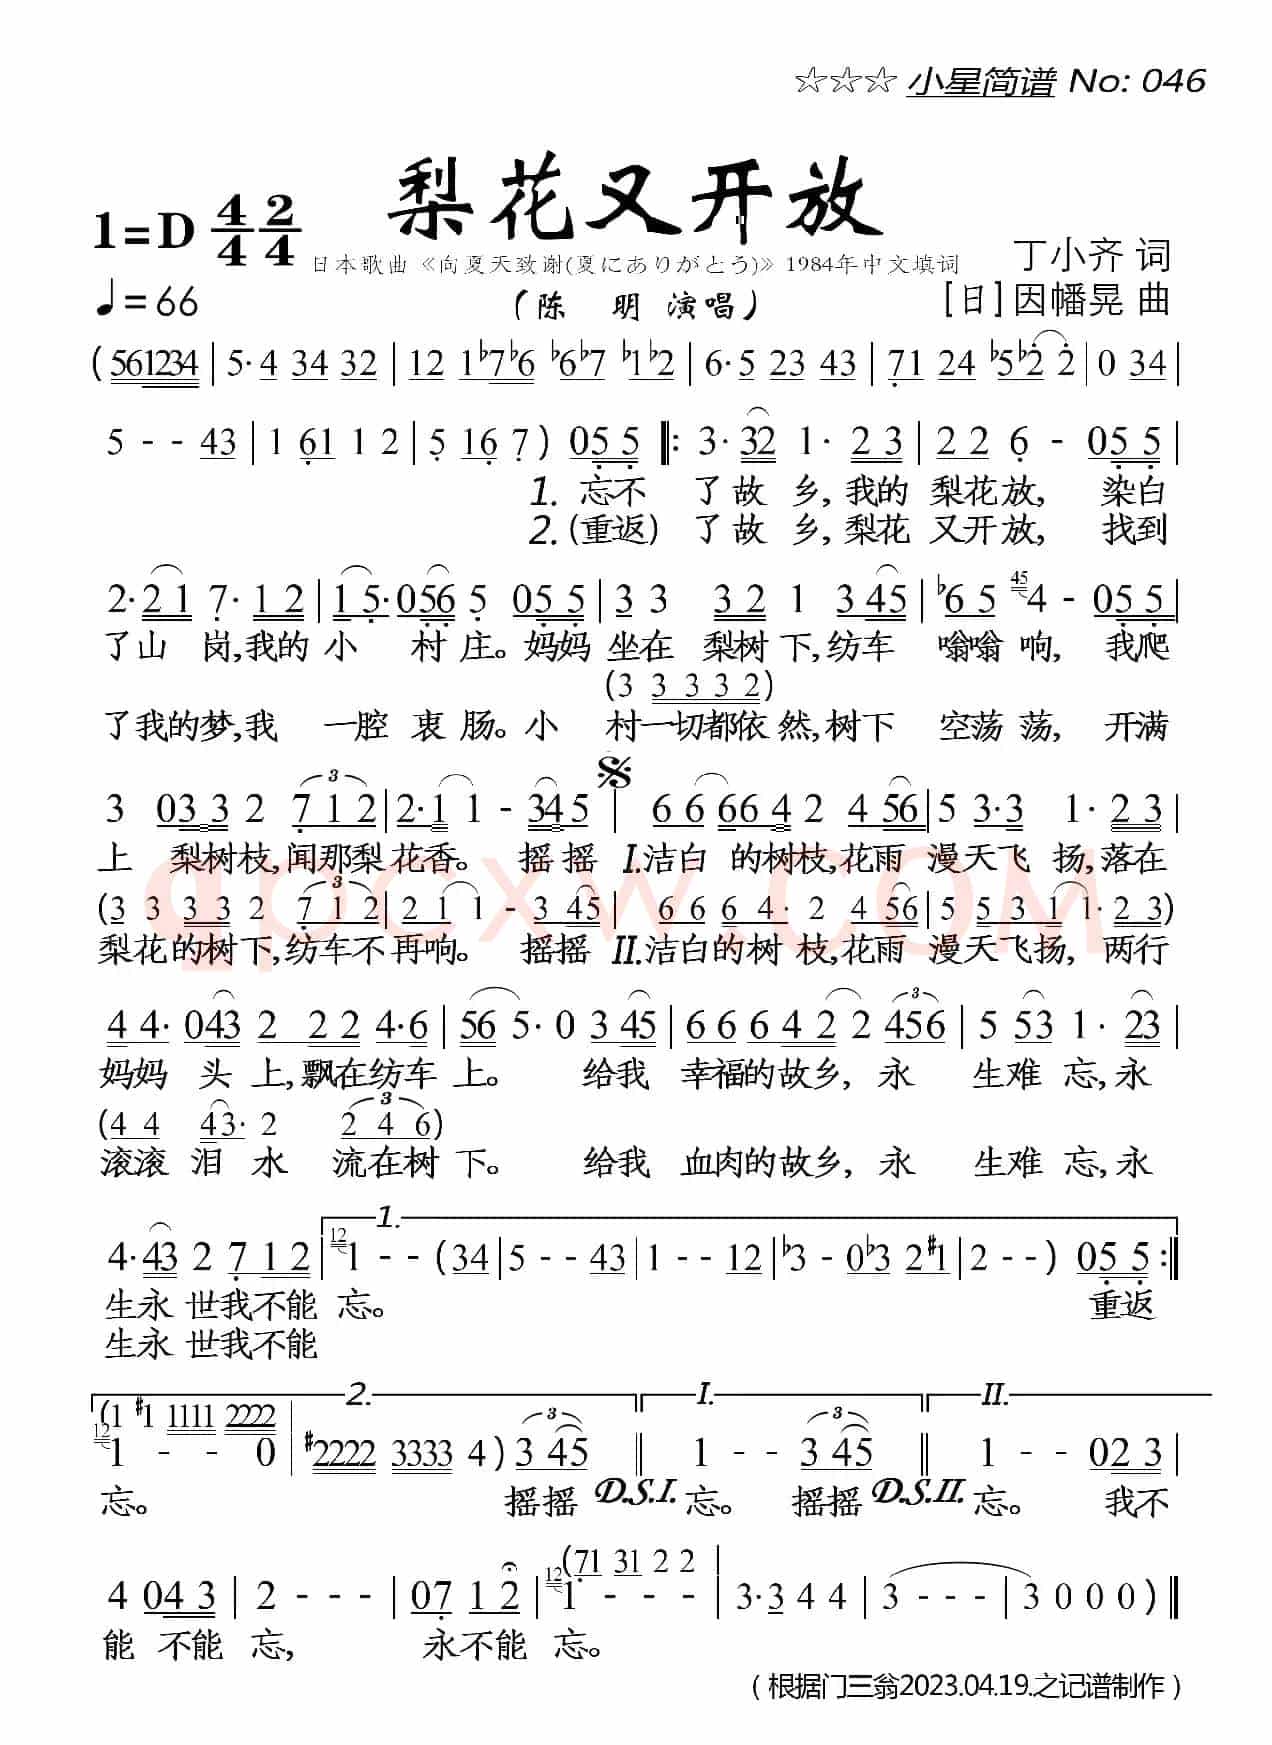 ☆☆☆ 小星简谱 No: 046
梨花又开放
1=D 4/4 2/4
日本歌曲《向夏天致谢(夏にありがとう)》1984年中文填词
丁小齐 词
♩=66
(陈 明 演唱)
[日]因幡晃 曲
(561234|5·4 34 32|12 1♭7♭6 ♭6♭7 ♭1♭2|6·5 23 43|71 24 ♭5♭2 2|0 34|
5 - - 43|1 61 1 2|5 16 7) 055 ‖: 3·32 1· 23|22 6 - 055|
1. 忘不 了故 乡,我的 梨花放, 染白
2.(重返) 了故 乡,梨花 又开放, 找到
2·21 7· 12|15·056 5 055|33 32 1 345|♭65 45 4 - 055|
了山 岗,我的 小 村 庄。妈妈 坐在 梨树 下,纺车 嗡嗡 响, 我爬
(3 3 3 3 2)
了我的梦,我 一腔 衷 肠。小 村一切都依 然,树下 空荡 荡, 开满
3 033 2 3 712|2·1 1 - 345|66 664 2 456|53·3 1· 23|
上 梨树枝,闻那梨花香。 摇摇 I.洁白 的树枝,花雨 漫天飞 扬,落在
(3 3 33 2 3 712|2 1 1 - 3 45|66 64· 2 4 56|55 31 1· 23)
梨花的树下,纺车不再响。 摇摇 II.洁白的树 枝,花雨 漫天飞扬, 两行
44· 043 2 22 4·6|56 5· 0 345|66 642 2 3 456|5 53 1· 23|
妈妈 头 上,飘在纺车 上。 给我 幸福的故乡, 永 生难 忘,永
(44 43· 2 3 246)
滚滚 泪 水 流在树 下。 给我 血肉的故乡, 永 生难 忘,永
1.
4·43 2 7 12|12 1 - - (34|5 - - 43|1 - - 12|♭3 - 0♭3 2♯1|2 - - ) 055:‖
生永 世我不能 忘。 重返
生永 世我不能
2. I. II.
(1 ♯1 1111 2222
12 1 - - 0|♯2222 3333 4) 3 345‖1 - - 3 345‖1 - - 023|
忘。 摇摇 D.S.I. 忘。 摇摇 D.S.II. 忘。 我不
(71 31 2 2|
4 043|2 - - -|07 12|12 1 - - -|3·3 4 4|3 - - -|3 0 0 0)‖
能 不能 忘, 永不能 忘。
qpcxw.COM
(根据门三翁2023.04.19.之记谱制作)